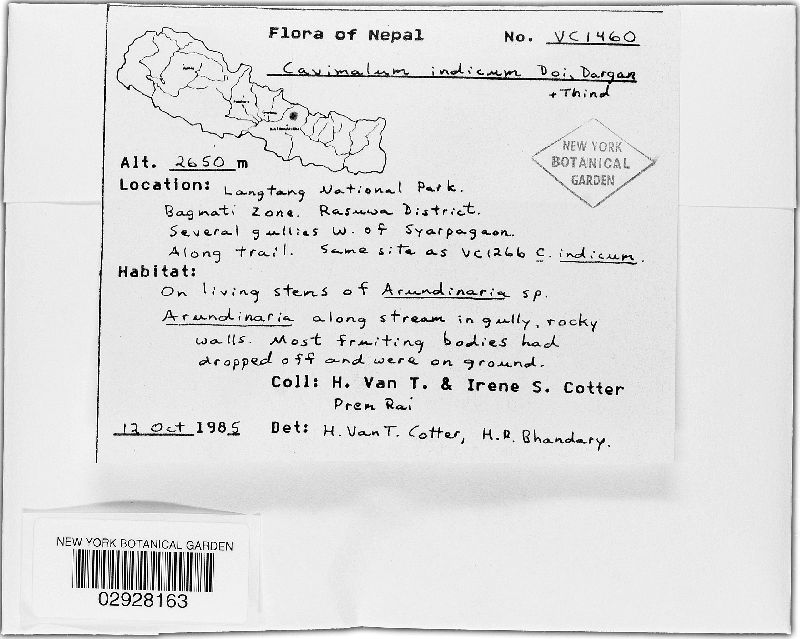 Flora of Nepal No. VC1460
Cavimalum indicum Doi, Dargan
+ Thind
NEW YORK
BOTANICAL
GARDEN
Alt. 2650 m
Location: Langtang National Park.
Bagmati Zone. Rasuwa District.
Several gullies W. of Syarpagaon.
Along trail. Same site as VC1266 C. indicum.
Habitat:
On living stems of Arundinaria sp.
Arundinaria along stream in gully, rocky
walls. Most fruiting bodies had
dropped off and were on ground.
Coll: H. Van T. & Irene S. Cotter
Prem Rai
12 Oct 1985 Det: H. Van T. Cotter, H.R. Bhandary.
NEW YORK BOTANICAL GARDEN
02928163